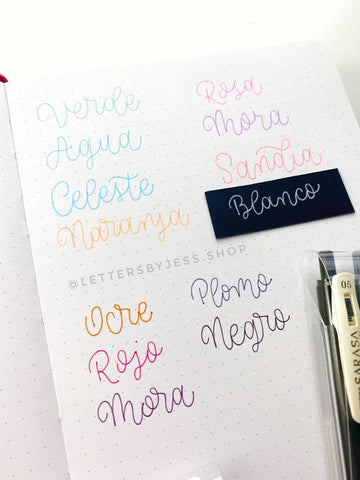 Verde
Agua
Celeste
Naranja
Rosa
Mora
Sandia
Blanco
@LETTERSBYJESS.SHOP
Ocre
Rojo
Mora
Plomo
Negro
05
SARASA